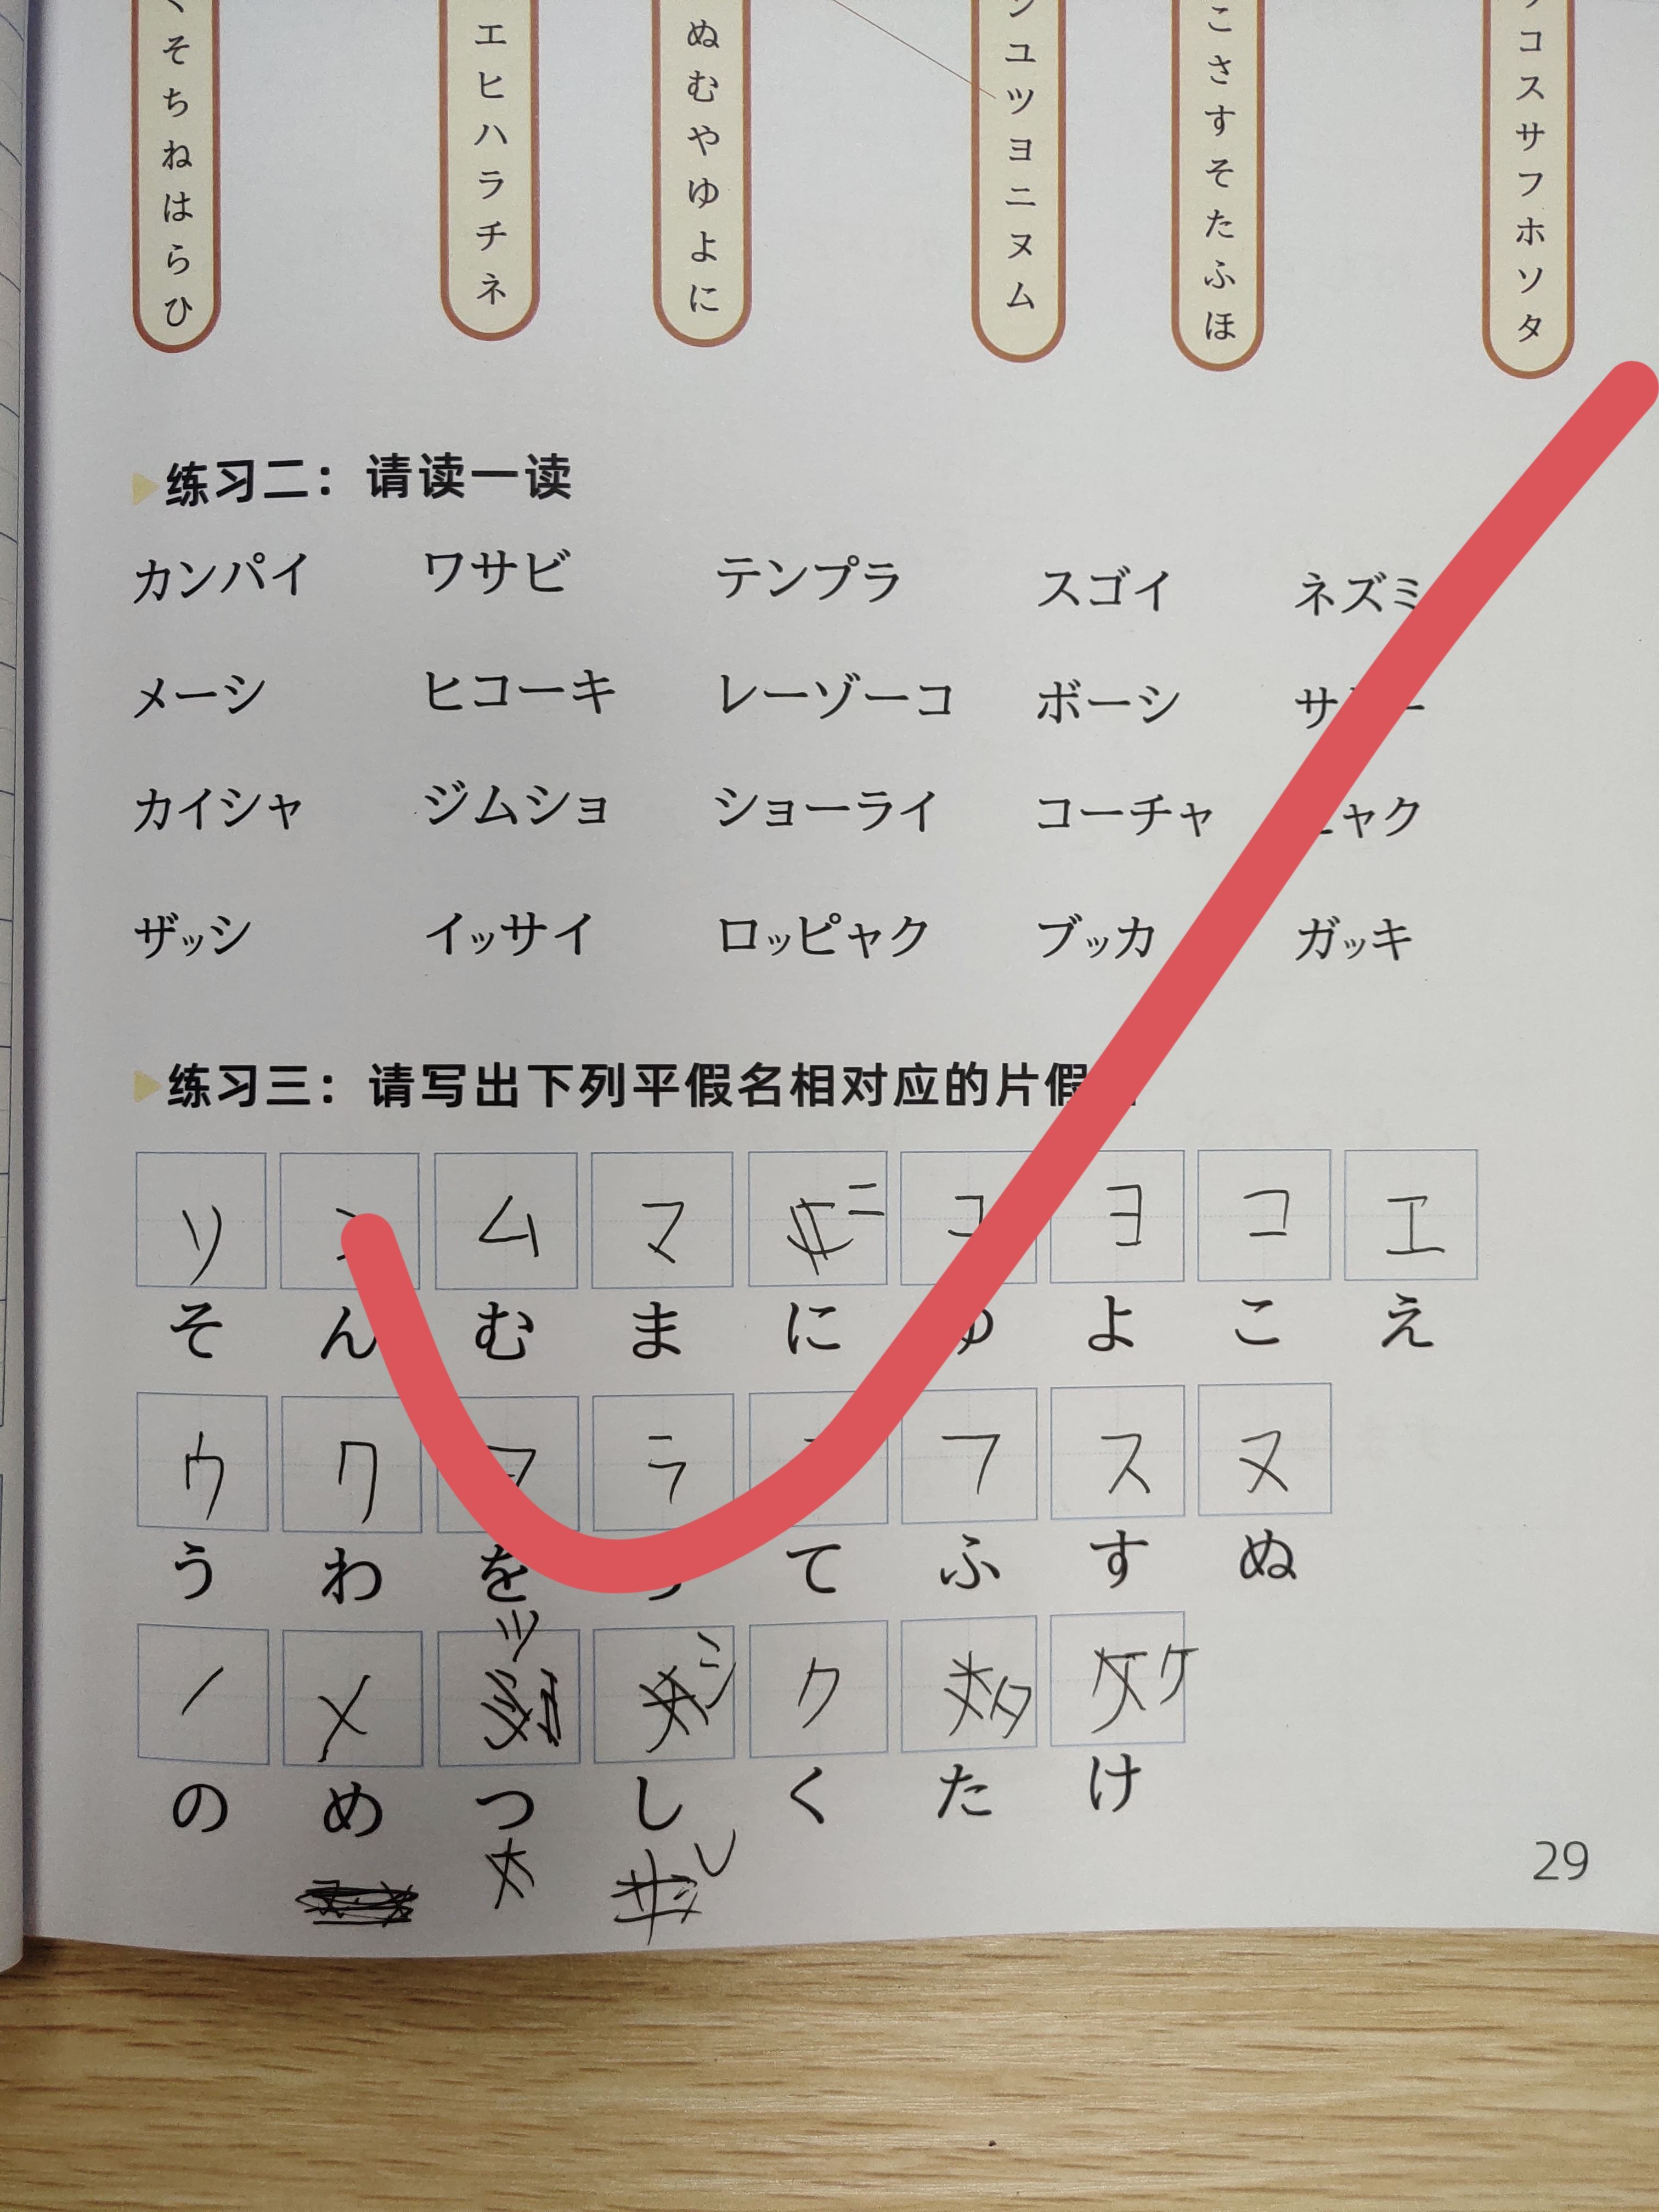 そちねはらひ
エヒハラチネ
ぬむやゆよに
ユツヨニヌム
こさすそたふほ
コスサフホソタ
练习二：请读一读
カンパイ ワサビ テンプラ スゴイ ネズミ
メーシ ヒコーキ レーゾーコ ボーシ
カイシャ ジムショ ショーライ コーチャ
ザッシ イッサイ ロッピャク ブッカ ガッキ
练习三：请写出下列平假名相对应的片假
ソ ム マ ニ ヨ コ エ
そ ん む ま に ゆ よ こ え
ウ ワ ラ フ ス ヌ
う わ を て ふ す ぬ
ツ
ノ メ シ ク タ ケ
の め つ し く た け
29